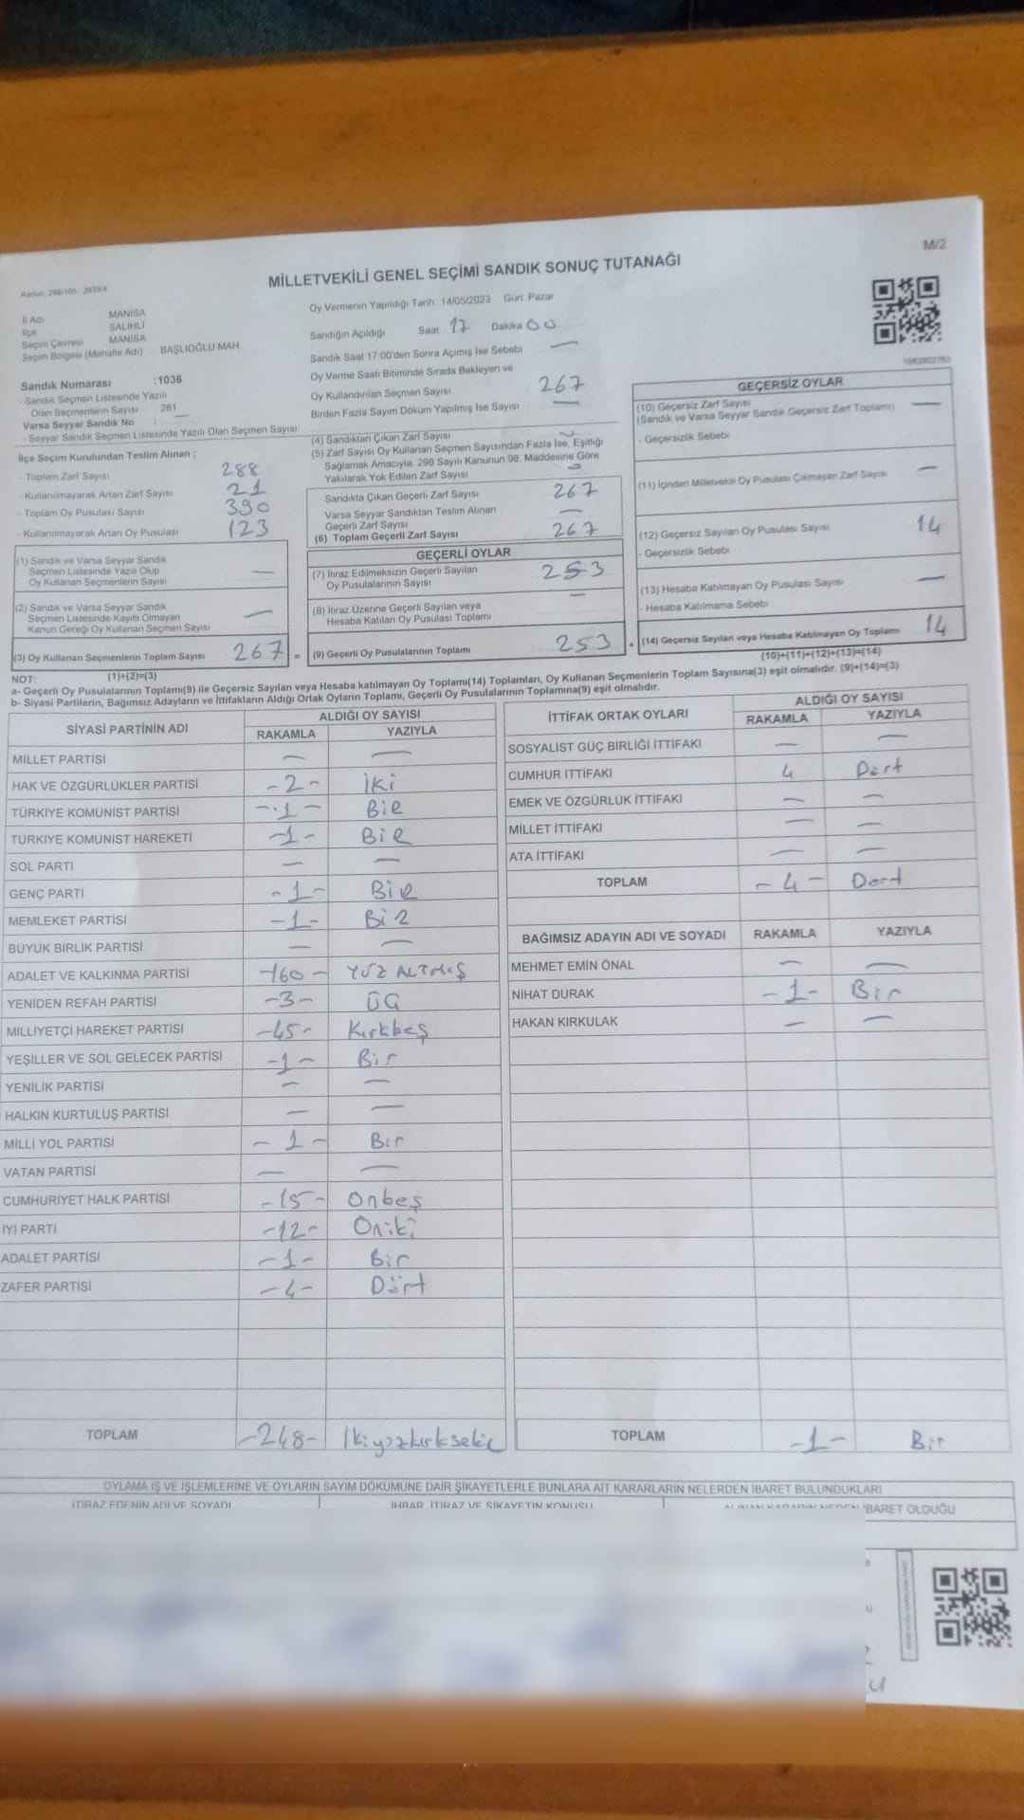 M/2
MİLLETVEKİLİ GENEL SEÇİMİ SANDIK SONUÇ TUTANAĞI
İl Adı MANİSA
İlçe SALİHLİ
Seçim Çevresi MANİSA
Seçim Bölgesi (Mahalle Adı) BAŞLIOĞLU MAH.
Sandık Numarası :1036
- Sandık Seçmen Listesinde Yazılı
Olan Seçmenlerin Sayısı 281
Varsa Seyyar Sandık No
- Seyyar Sandık Seçmen Listesinde Yazılı Olan Seçmen Sayısı
İlçe Seçim Kurulundan Teslim Alınan ;
- Toplam Zarf Sayısı 288
- Kullanılmayarak Artan Zarf Sayısı 21
- Toplam Oy Pusulası Sayısı 390
- Kullanılmayarak Artan Oy Pusulası 123
(1) Sandık ve Varsa Seyyar Sandık
Seçmen Listesinde Yazılı Olup
Oy Kullanan Seçmenlerin Sayısı —
(2) Sandık ve Varsa Seyyar Sandık
Seçmen Listesinde Kayıtlı Olmayan
Kanun Gereği Oy Kullanan Seçmen Sayısı —
(3) Oy Kullanan Seçmenlerin Toplam Sayısı 267 =
(1)+(2)=(3)
Oy Vermenin Yapıldığı Tarih: 14/05/2023 Gün: Pazar
Sandığın Açıldığı Saat 17 Dakika 00
Sandık Saat 17:00'den Sonra Açılmış İse Sebebi —
Oy Verme Saati Bitiminde Sırada Bekleyen ve
Oy Kullandırılan Seçmen Sayısı 267
Birden Fazla Sayım Döküm Yapılmış İse Sayısı —
(4) Sandıktan Çıkan Zarf Sayısı
(5) Zarf Sayısı Oy Kullanan Seçmen Sayısından Fazla İse, Eşitliği
Sağlamak Amacıyla, 298 Sayılı Kanunun 98. Maddesine Göre
Yakılarak Yok Edilen Zarf Sayısı
Sandıkta Çıkan Geçerli Zarf Sayısı 267
Varsa Seyyar Sandıktan Teslim Alınan
Geçerli Zarf Sayısı —
(6) Toplam Geçerli Zarf Sayısı 267
GEÇERLİ OYLAR
(7) İtiraz Edilmeksizin Geçerli Sayılan
Oy Pusulalarının Sayısı 253
(8) İtiraz Üzerine Geçerli Sayılan veya
Hesaba Katılan Oy Pusulası Toplamı —
(9) Geçerli Oy Pusulalarının Toplamı 253 +
GEÇERSİZ OYLAR
(10) Geçersiz Zarf Sayısı
(Sandık ve Varsa Seyyar Sandık Geçersiz Zarf Toplamı) —
- Geçersizlik Sebebi
(11) İçinden Milletvekili Oy Pusulası Çıkmayan Zarf Sayısı —
(12) Geçersiz Sayılan Oy Pusulası Sayısı 14
- Geçersizlik Sebebi
(13) Hesaba Katılmayan Oy Pusulası Sayısı —
- Hesaba Katılmama Sebebi
(14) Geçersiz Sayılan veya Hesaba Katılmayan Oy Toplamı 14
(10)+(11)+(12)+(13)=(14)
NOT:
a- Geçerli Oy Pusulalarının Toplamı(9) ile Geçersiz Sayılan veya Hesaba katılmayan Oy Toplamı(14) Toplamları, Oy Kullanan Seçmenlerin Toplam Sayısına(3) eşit olmalıdır. (9)+(14)=(3)
b- Siyasi Partilerin, Bağımsız Adayların ve İttifakların Aldığı Ortak Oyların Toplamı, Geçerli Oy Pusulalarının Toplamına(9) eşit olmalıdır.
SİYASİ PARTİNİN ADI ALDIĞI OY SAYISI
RAKAMLA YAZIYLA
MİLLET PARTİSİ — —
HAK VE ÖZGÜRLÜKLER PARTİSİ -2- İki
TÜRKİYE KOMÜNİST PARTİSİ -1- Bir
TÜRKİYE KOMÜNİST HAREKETİ -1- Bir
SOL PARTİ — —
GENÇ PARTİ -1- Bir
MEMLEKET PARTİSİ -1- Bir
BÜYÜK BİRLİK PARTİSİ — —
ADALET VE KALKINMA PARTİSİ -160- YÜZ ALTMIŞ
YENİDEN REFAH PARTİSİ -3- ÜÇ
MİLLİYETÇİ HAREKET PARTİSİ -45- Kırkbeş
YEŞİLLER VE SOL GELECEK PARTİSİ -1- Bir
YENİLİK PARTİSİ — —
HALKIN KURTULUŞ PARTİSİ — —
MİLLİ YOL PARTİSİ -1- Bir
VATAN PARTİSİ — —
CUMHURİYET HALK PARTİSİ -15- Onbeş
İYİ PARTİ -12- Oniki
ADALET PARTİSİ -1- Bir
ZAFER PARTİSİ -4- Dört
TOPLAM -248- İkiyüzkırksekiz
İTTİFAK ORTAK OYLARI ALDIĞI OY SAYISI
RAKAMLA YAZIYLA
SOSYALİST GÜÇ BİRLİĞİ İTTİFAKI — —
CUMHUR İTTİFAKI 4 Dört
EMEK VE ÖZGÜRLÜK İTTİFAKI — —
MİLLET İTTİFAKI — —
ATA İTTİFAKI — —
TOPLAM -4- Dört
BAĞIMSIZ ADAYIN ADI VE SOYADI RAKAMLA YAZIYLA
MEHMET EMİN ÖNAL — —
NİHAT DURAK -1- Bir
HAKAN KIRKULAK — —
TOPLAM -1- Bir
OYLAMA İŞ VE İŞLEMLERİNE VE OYLARIN SAYIM DÖKÜMÜNE DAİR ŞİKAYETLERLE BUNLARA AİT KARARLARIN NELERDEN İBARET BULUNDUKLARI
İTİRAZ EDENİN ADI VE SOYADI İHBAR, İTİRAZ VE ŞİKAYETİN KONUSU İBARET OLDUĞU